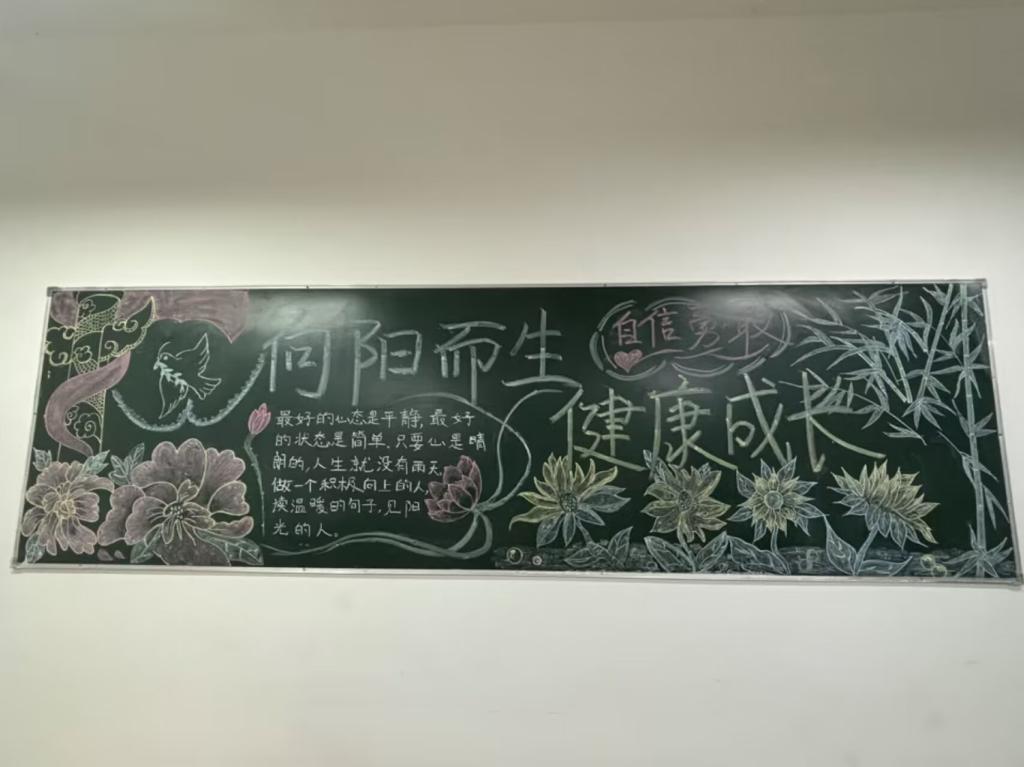 向阳而生
自信勇敢
健康成长
最好的心态是平静,最好
的状态是简单,只要心是晴
朗的,人生就没有雨天,
做一个积极向上的人,
读温暖的句子,见阳
光的人。